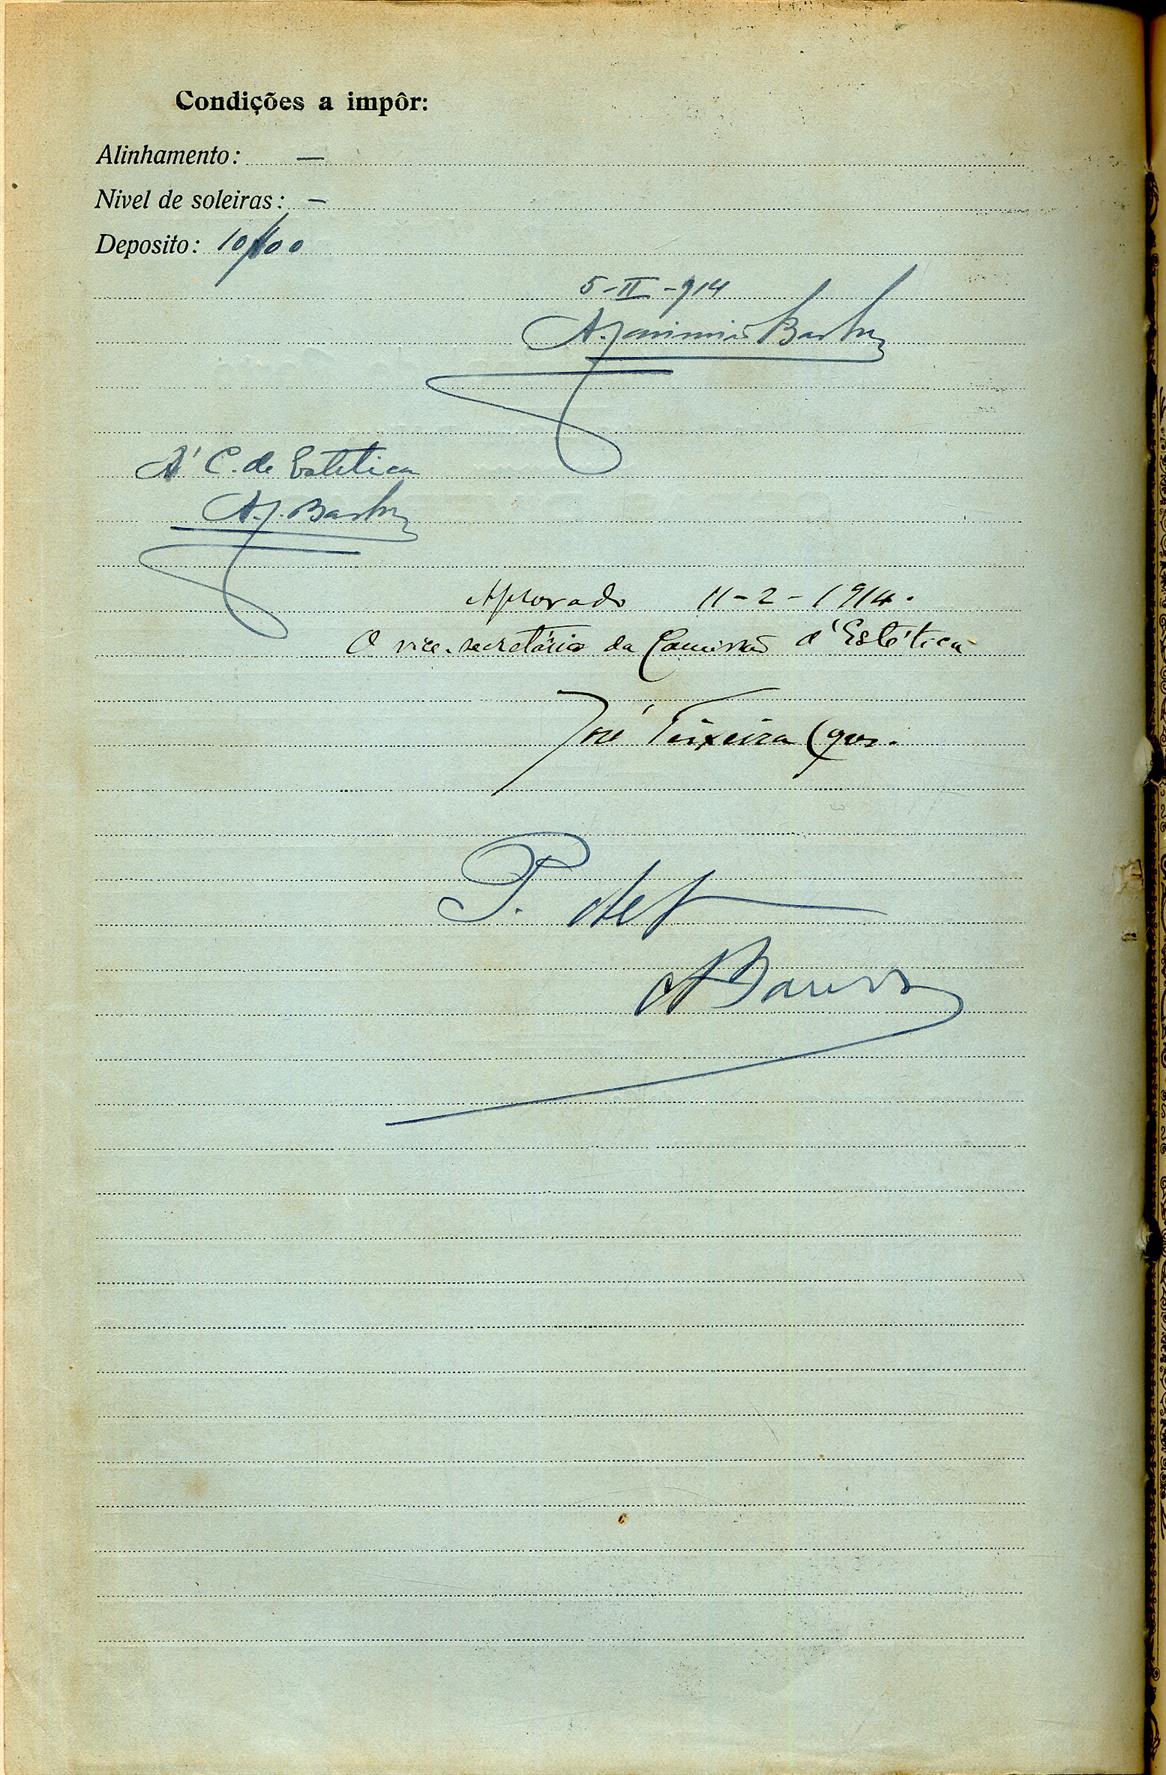 Condições a impôr:
Alinhamento: —
Nivel de soleiras: —
Deposito: 10$00
5-II-914
A. J. Barb
Á C. de Estetica
A. J. Barb
Aprovado 11-2-1914.
O vice-secretário da Comissão d'Estética
José Teixeira Lopes.
P. def